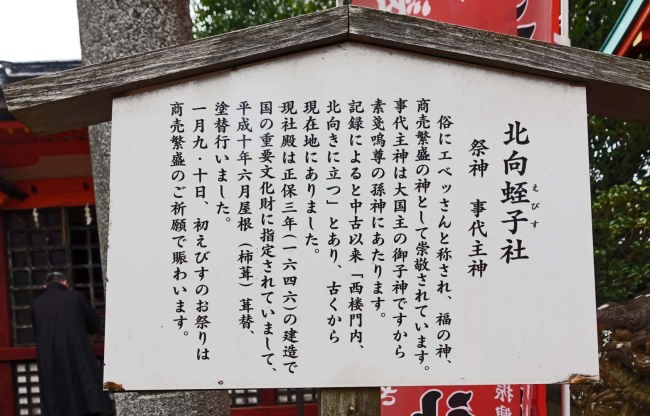 北向蛭子社
えびす
祭神　事代主神
俗にエベッさんと称され、福の神、
商売繁盛の神として崇敬されています。
事代主神は大国主の御子神ですから
素戔嗚尊の孫神にあたります。
記録によると中古以来「西楼門内、
北向きに立つ」とあり、古くから
現在地にありました。
現社殿は正保三年（一六四六）の建造で
国の重要文化財に指定されていまして、
平成十年六月屋根（柿葺）葺替、
塗替行いました。
一月九・十日、初えびすのお祭りは
商売繁盛のご祈願で賑わいます。